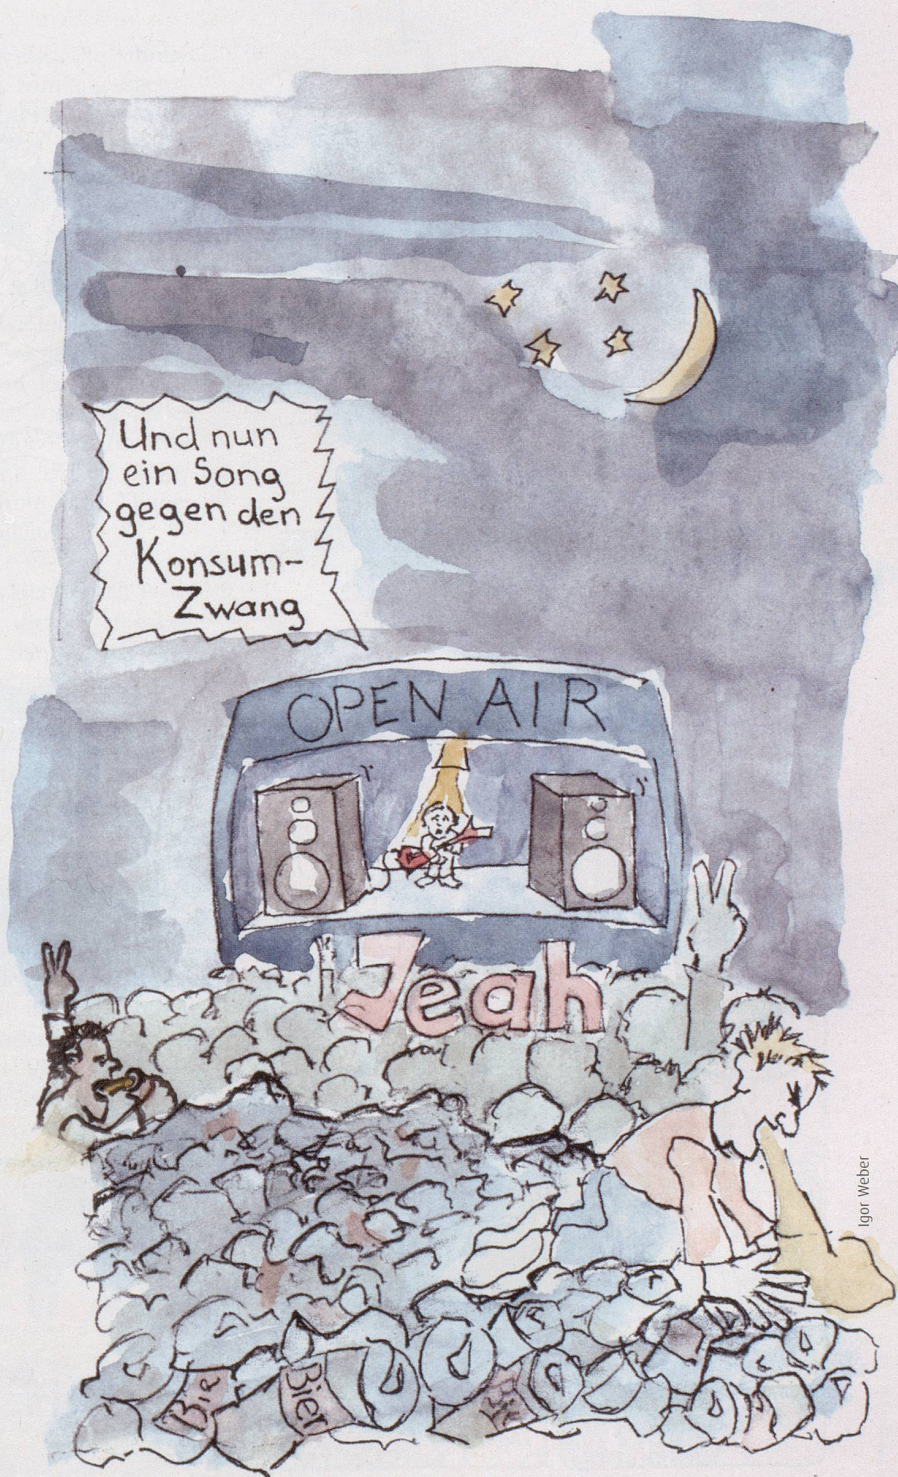 Und nun
ein Song
gegen den
Konsum-
Zwang
OPEN AIR
Jeah
Igor Weber
Bier
Bier